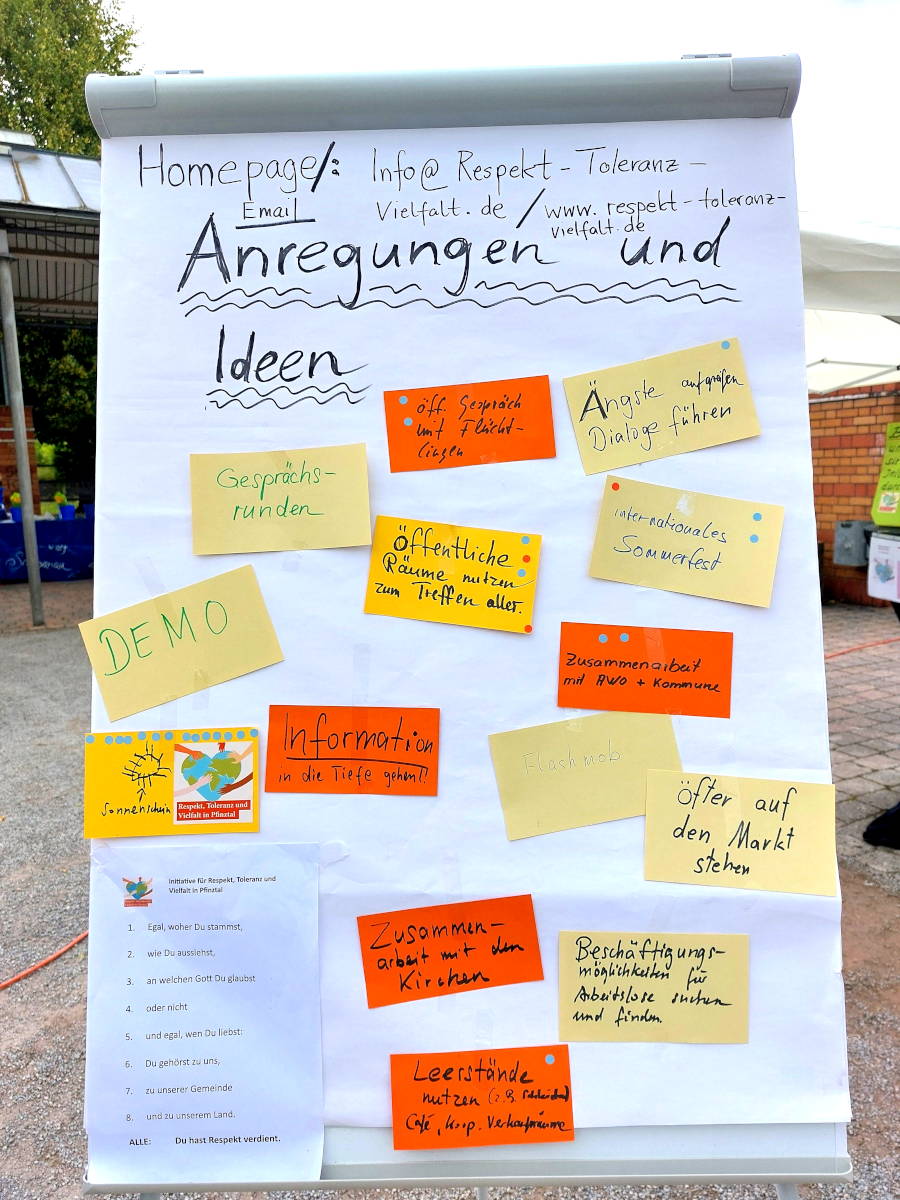 Homepage/: Info@ Respekt-Toleranz-
Email Vielfalt.de / www.respekt-toleranz-
vielfalt.de
Anregungen und
Ideen
öff. Gespräch
mit Flücht-
lingen
Ängste aufgreifen
Dialoge führen
Gesprächs-
runden
Öffentliche
Räume nutzen
zum Treffen aller.
internationales
Sommerfest
DEMO
Zusammenarbeit
mit AWO + Kommune
Sonnenschein
Respekt, Toleranz und
Vielfalt in Pfinztal
Information
in die Tiefe gehen!
Flashmob
Öfter auf
den Markt
stehen
Initiative für Respekt, Toleranz und
Vielfalt in Pfinztal
1. Egal, woher Du stammst,
2. wie Du aussiehst,
3. an welchen Gott Du glaubst
4. oder nicht
5. und egal, wen Du liebst:
6. Du gehörst zu uns,
7. zu unserer Gemeinde
8. und zu unserem Land.
ALLE: Du hast Respekt verdient.
Zusammen-
arbeit mit den
Kirchen
Beschäftigungs-
möglichkeiten für
Arbeitslose suchen
und finden.
Leerstände
nutzen (z.B.
Café, Koop. Verkaufsräume